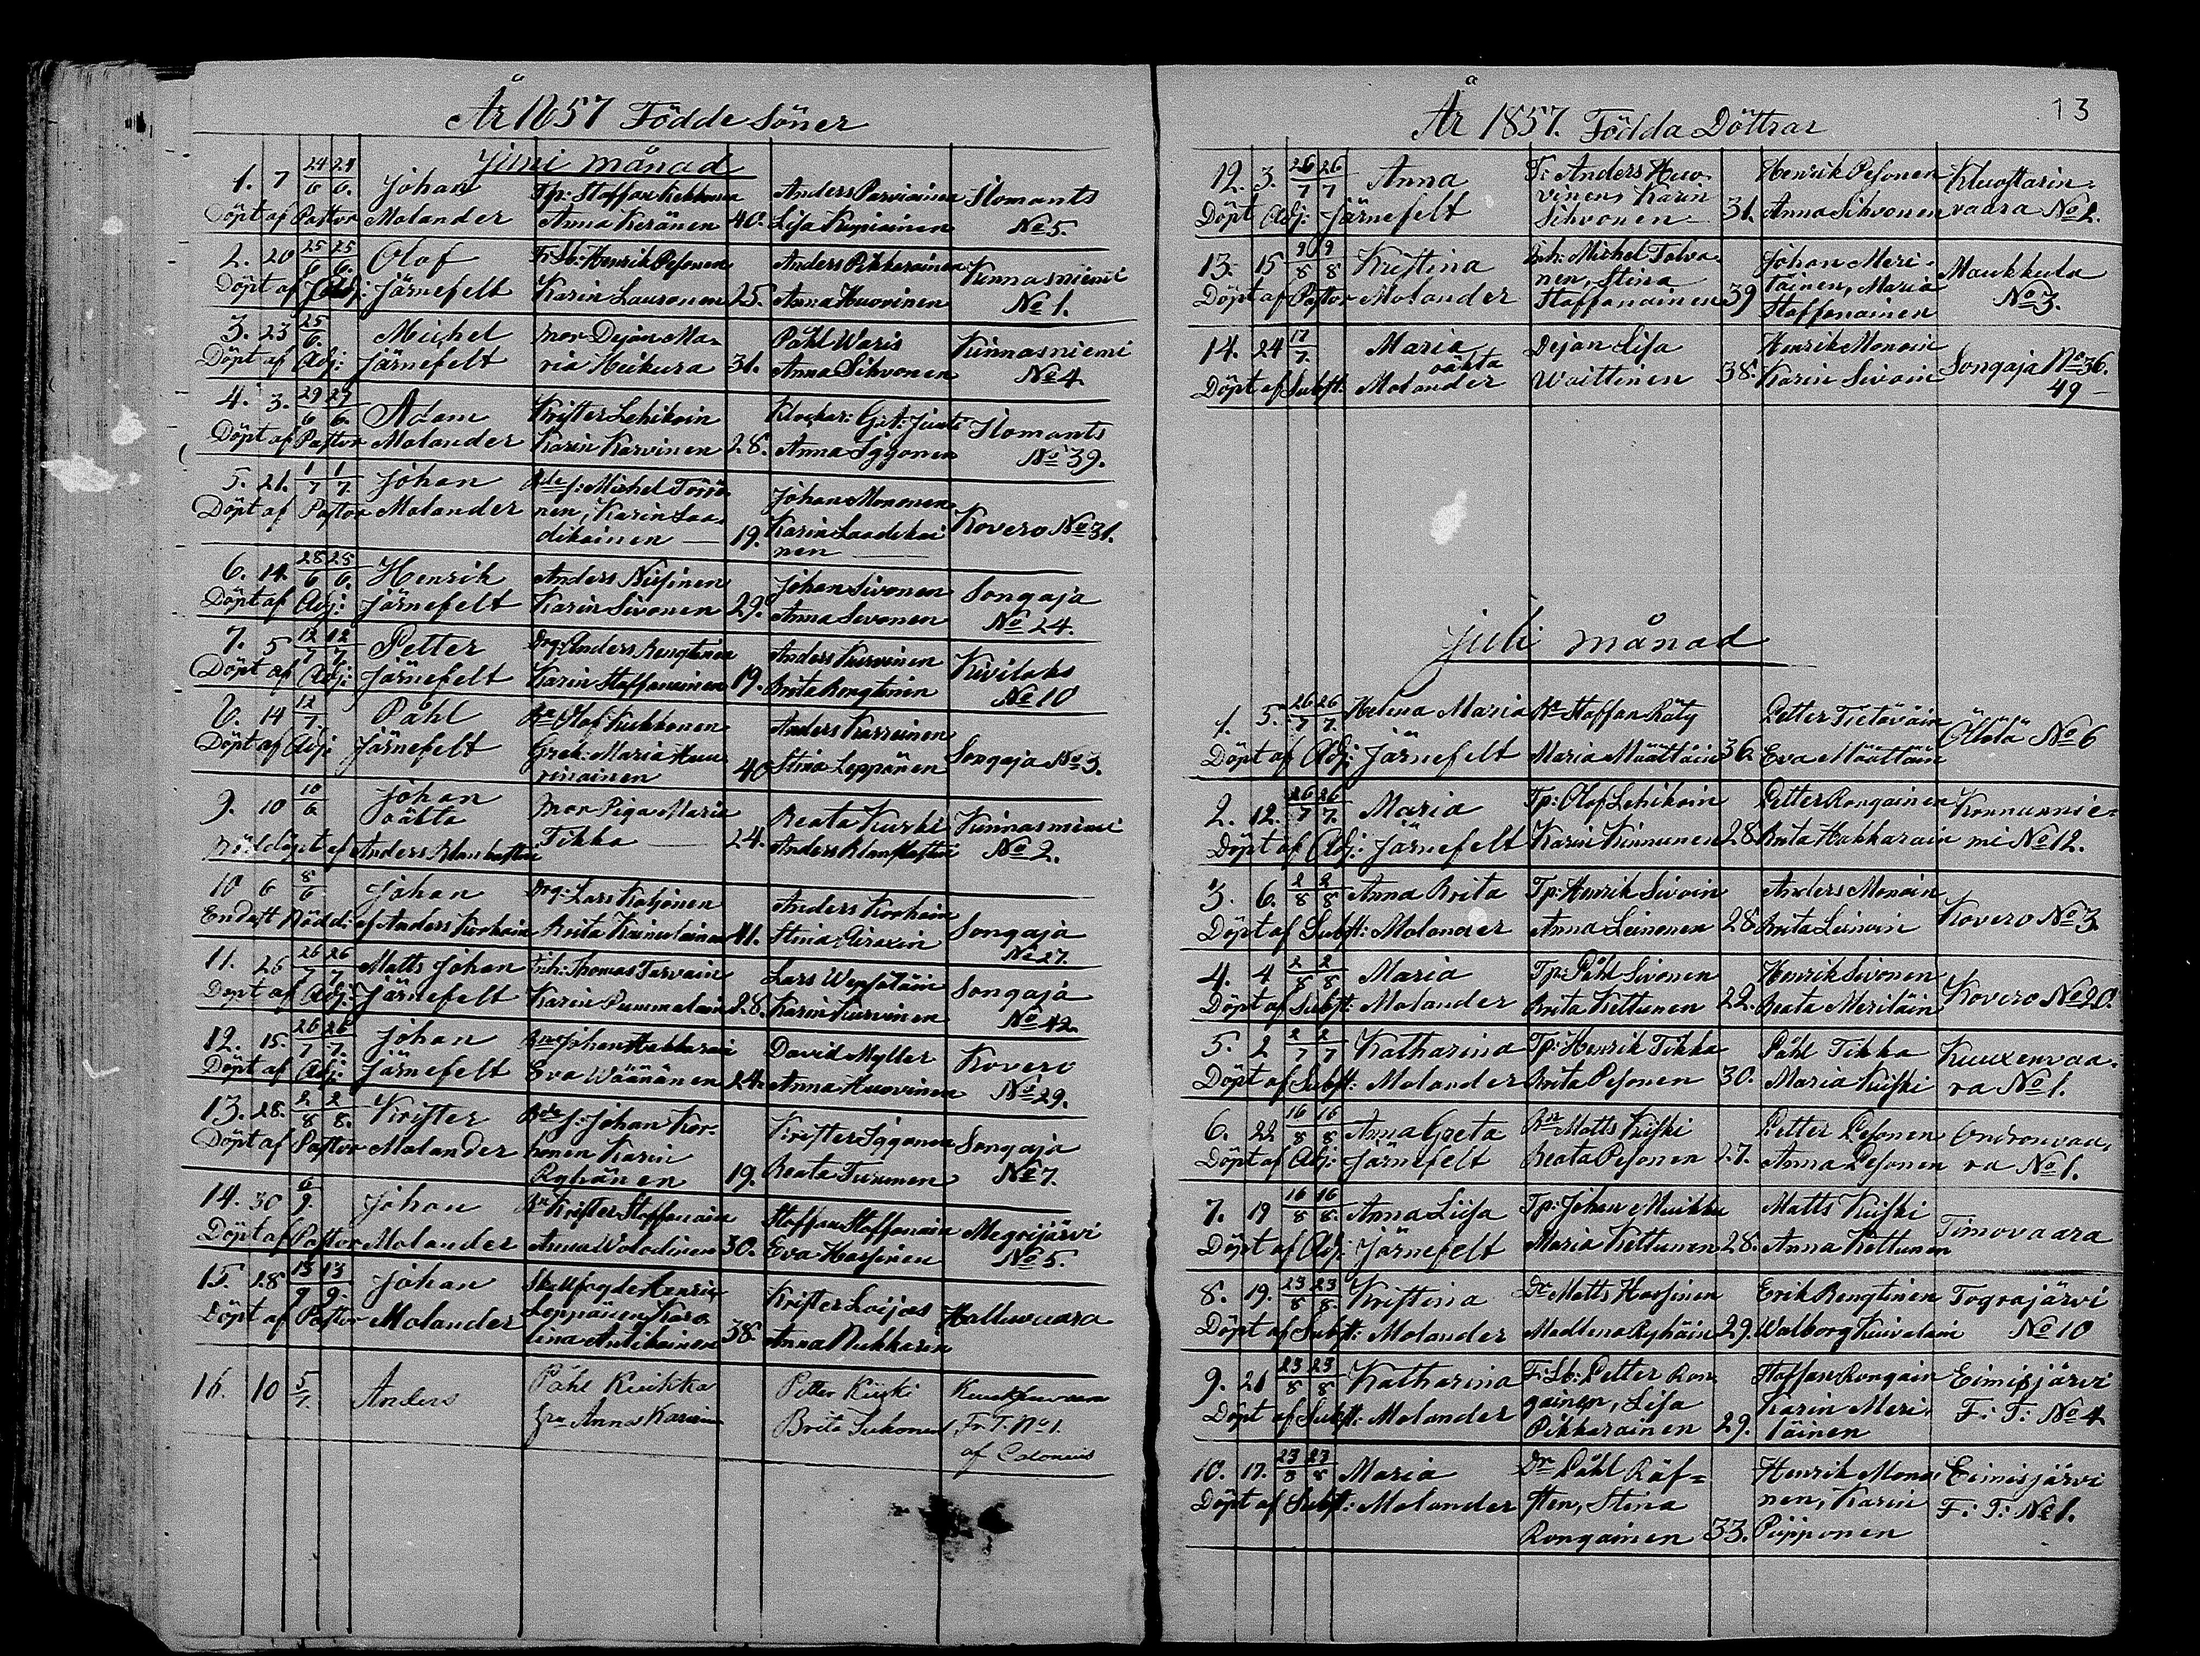 År 1857 Födde Söner
Juni månad
1. 7 24/6 24/6. Johan Tp: Staffan Kekkonen Anders Parviainen Ilomants
Döpt af Pastor Molander Anna Keränen 40. Lisa Kupiainen No 5.
2. 20 25/6 25/6. Olof F: Sb: Henrik Pesonen Anders Pikkarainen Kinnasniemi
Döpt af Adj: Järnefelt Karin Lauronen 25. Anna Huovinen No 1.
3. 23 25/6. Michel mor Dejan Ma- Påhl Waris Kinnasniemi
Döpt af Adj: Järnefelt ria Heikura 31. Anna Sihvonen No 4
4. 3. 29/6 29/6. Adam Krister Lehikoin Klockar: G: A: Ilomants
Döpt af Pastor Molander Karin Karvinen 28. Anna Iggonen No 39.
5. 21. 1/7 1/7. Johan Michel Törrö- Johan Mononen
Döpt af Pastor Molander nen, Karin Laa- Karin Laadikai Kovero No 31.
dikainen — 19. nen —
6. 14. 28/6 28/6. Henrik Anders Nissinen Johan Sivonen Songaja
Döpt af Adj: Järnefelt Karin Sivonen 29. Anna Sivonen No 24.
7. 5 12/7 12/7. Petter Drg: Anders Rengtinen Anders Kurvinen Kivilaks
Döpt af Adj: Järnefelt Karin Staffanainen 19. Brita Rengtinen No 10
8. 14 12/7. Påhl Olof Kukkonen Anders Karvinen
Döpt af Adj: Järnefelt Grek: Maria Huu- Stina Leppänen Songaja No 3.
rinainen 40
9. 10 10/6 Johan mor Piga Maria Beata Kurki Kinnasniemi
oäkta Tikka — 24. Anders No 2.
Nöddöpt af Anders
10 6 8/6 Johan Drg: Lars Koljonen Anders Korhoin Songaja
Endast Nödd: af Anders Korhoin Brita Kainulainen 41. Stina No 27.
11. 26 26/7 26/7 Matts Johan Inh: Thomas Tarvain Lars Wepsäläin Songaja
Döpt af Adj: Järnefelt Karin Pummalain 28. Karin Kurvinen No 42.
12. 15. 26/7 26/7. Johan Bn Johan Hakkarai David Myller Kovero
Döpt af Adj: Järnefelt Eva Wäänänen 24. Anna Huovinen No 29.
13. 28. 2/8 2/8. Krister J: Johan Kor- Krister Iggonen Songaja
Döpt af Pastor Molander honen Karin Beata Turunen No 7.
Ryhänen 19.
14. 30 6/9. Johan Bn Krister Staffanain Staffan Staffanain Megrijärvi
Döpt af Pastor Molander Anna Wolodinen 30. Eva Hassinen No 5.
15. 28 13/9 13/9. Johan Skallfogde Henrik Krister Loijas Halluvaara
Döpt af Pastor Molander Leppänen Karo- Anna Nukkarin
lina Antikainen 38.
16. 10 5/7. Anders Påhl Kuikka Petter Kiiski
hu Anna Karvinen Brita Fr. T. No 1.
af Calonius
13
År 1857. Födda Döttrar
12. 3. 26/7 26/7 Anna F: Anders Huo- Henrik Pesonen Kluostarin-
Döpt Adj: Järnefelt vinen, Karin Anna Sihvonen vaara No 2.
Sihvonen 31.
13. 15 9/8 9/8 Kristina Inh: Michel Tolva- Johan Meri- Maukkula
Döpt af Pastor Molander nen, Stina täinen, Maria No 3.
Staffanainen 39 Staffanainen
14. 24 17/7. Maria Dejan Lisa Henrik Monoin Songaja No 36.
oäkta
Döpt af Subst: Molander Waittinen 38. Karin Sivoin 49 —
Juli månad
1. 5. 26/7 26/7. Helena Maria Bn Staffan Räty Petter Tietäväin Öllölä No 6
Döpt af Adj: Järnefelt Maria Määttäin 36. Eva Määttäin
2. 12. 26/7 26/7. Maria Tp: Olof Lehikoin Petter Rongainen Konnunnie-
Döpt af Adj: Järnefelt Karin Kinnunen 28. Brita Hakkarain mi No 12.
3. 6. 2/8 2/8 Anna Brita Tp: Henrik Sivoin Anders Monoin Kovero No 3.
Döpt af Subst: Molander Anna Leinonen 28. Brita Leinoin
4. 4 2/8 2/8 Maria Tp: Påhl Sivonen Henrik Sivonen Kovero No 20.
Döpt af Subst: Molander Brita Kettunen 22. Beata Meriläin
5. 2 2/7 2/7 Katharina Tp: Henrik Tikka Påhl Tikka Kuuxenvaa-
Döpt af Subst: Molander Brita Pesonen 30. Maria Kuiski ra No 1.
6. 22 16/8 16/8 Anna Greta Bn Matts Kuiski Petter Pesonen Ondronvaa-
Döpt af Adj: Järnefelt Beata Pesonen 27. Anna Pesonen ra No 1.
7. 19 16/8 16/8. Anna Lisa Tp: Johan Muikku Matts Kuiski Timovaara
Döpt af Adj: Järnefelt Maria Kettunen 28. Anna Kettunen
8. 19. 23/8 23/8. Kristina Dr Matts Hassinen Erik Rengtinen Tograjärvi
Döpt af Subst: Molander Madlena Ryhäin 29. Walborg Kuivalain No 10
9. 21 23/8 23/8 Katharina F: Sb: Petter Ron- Staffan Rongain Eimisjärvi
Döpt af Subst: Molander gainen, Lisa Karin Meri- F: T: No 4
Pikkarainen 29. läinen
10. 17. 23/8 23/8 Maria Dr Påhl Räs= Henrik Mono- Eimisjärvi
Döpt af Subst: Molander sten, Stina nen, Karin F: T: No 1.
Rongainen 33. Piipponen